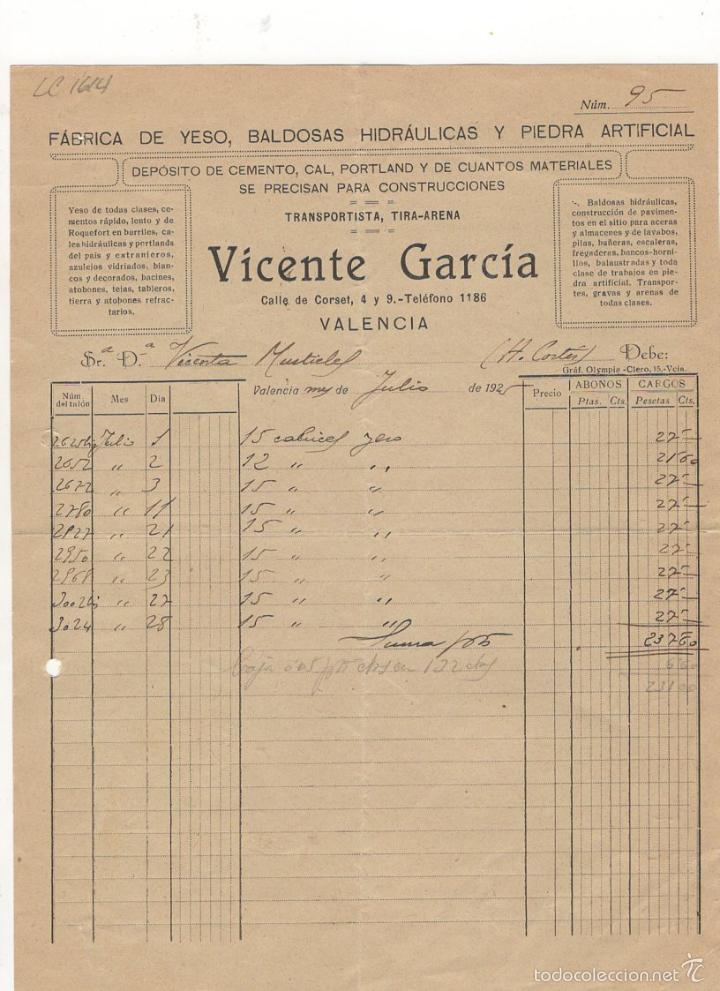 LC 1614
Núm. 95
FÁBRICA DE YESO, BALDOSAS HIDRÁULICAS Y PIEDRA ARTIFICIAL
DEPÓSITO DE CEMENTO, CAL, PORTLAND Y DE CUANTOS MATERIALES
SE PRECISAN PARA CONSTRUCCIONES
TRANSPORTISTA, TIRA-ARENA
Yeso de todas clases, ce-
mentos rápido, lento y de
Roquefort en barriles, ca-
les hidráulicas y portlands
del país y extranjeros,
azulejos vidriados, blan-
cos y decorados, bacines,
atobones, tejas, tableros,
tierra y atobones refrac-
tarios.
Baldosas hidráulicas,
construcción de pavimen-
tos en el sitio para aceras
y almacenes y de lavabos,
pilas, bañeras, escaleras,
fregaderas, bancos-horni-
llos, balaustradas y toda
clase de trabajos en pie-
dra artificial. Transpor-
tes, gravas y arenas de
todas clases.
Vicente García
Calle de Corset, 4 y 9.-Teléfono 1186
VALENCIA
Sr.ª D.ª Vicenta Mustieles (H. Cortés) Debe:
Gráf. Olympia -Clero, 15.-Vcia.
Núm. del talón Mes Día Valencia de Julio de 192 Precio ABONOS Ptas. Cts. CARGOS Pesetas Cts.
Julio 1 15 cahices yeso 27=
2652 " 2 12 " " 21 60
2672 " 3 15 " " 27=
2780 " 11 15 " " 27=
2827 " 21 15 " " 27=
2950 " 22 15 " " 27=
2968 " 23 15 " " 27=
" 27 15 " " 27=
3024 " 28 15 " " 27=
Suma pts 237 60
6 60
231 00
todocoleccion.net